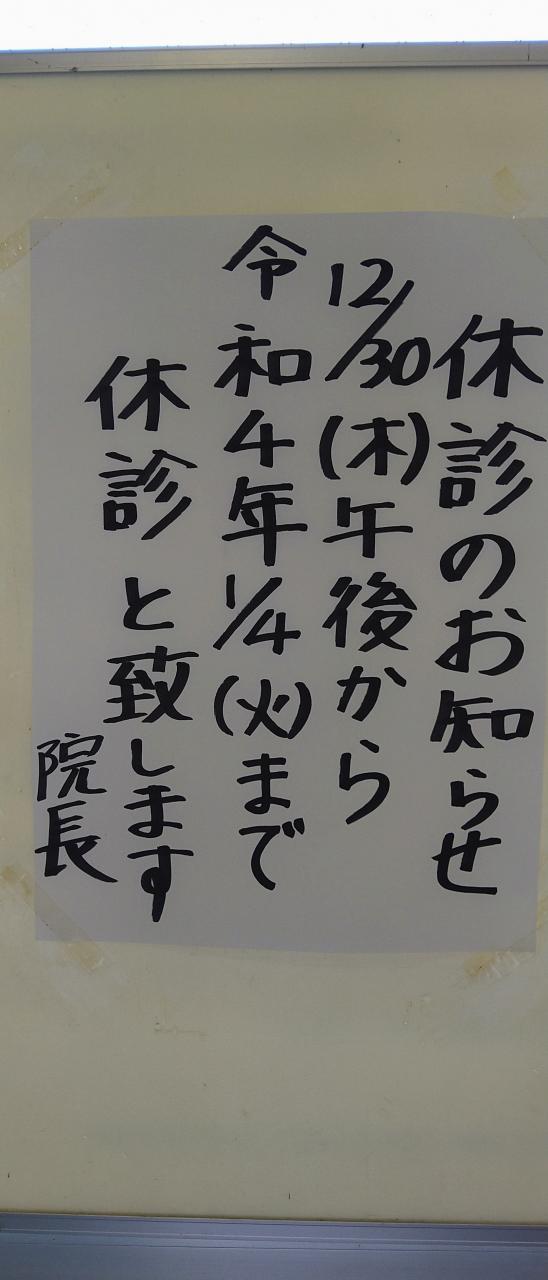 休診のお知らせ
12/30(木)午後から
令和4年1/4(火)まで
休診と致します
院長